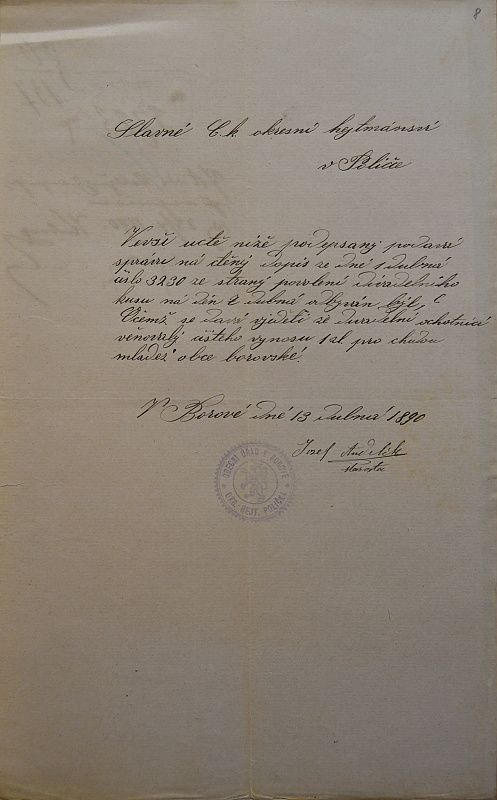 8
Slavné C. k. okresní hejtmánství
v Poličce
Vevší uctě níže podepsaný podává
správu na ctěný dopis ze dné 1 dubná
číslo 3230 ze strany povolení divadelního
kusu ná dén 2 dubná odbýván býl,
Včemž se daví vjeděti že divadelní ochotníci
věnovaly čistého vynosu 1 zl pro chudou
mládež obce borovské.
V Borové dné 13 dubná 1890
Josef Andrlík
starosta
OBECNÍ ÚŘAD V BOROVÉ
OKR. HEJT. POLIČKA